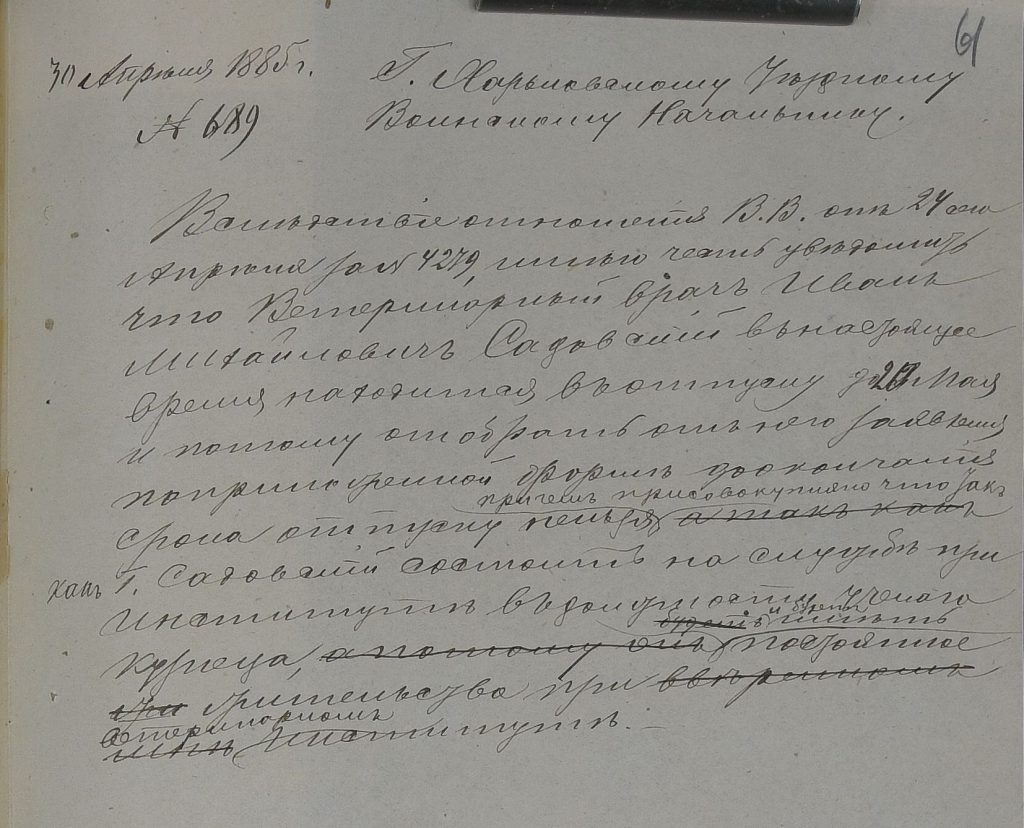 61
30 Апрѣля 1885 г.
№ 689
Г. Харьковскому Уѣздному
Воинскому Начальнику.
Вслѣдствіе отношенія В.В. отъ 24 сего
Апрѣля за № 4279, имѣю честь увѣдомить
что Ветеринарный врачъ Иванъ
Михайловичъ Садовскій въ настоящее
время находится въ отпуску до 20 Мая
и потому отобрать отъ него заявленія
по приложенной формѣ до окончанія
причемъ присовокупляю что такъ
срока отпуску нельзя, а такъ какъ
какъ Г. Садовскій состоитъ на службѣ при
Институтѣ въ должности Ученаго
будетъ и будетъ имѣть
Кузнеца, а потому онъ постоянное
при жительство при ввѣренномъ
ветеринарномъ
мнѣ Институтѣ. —